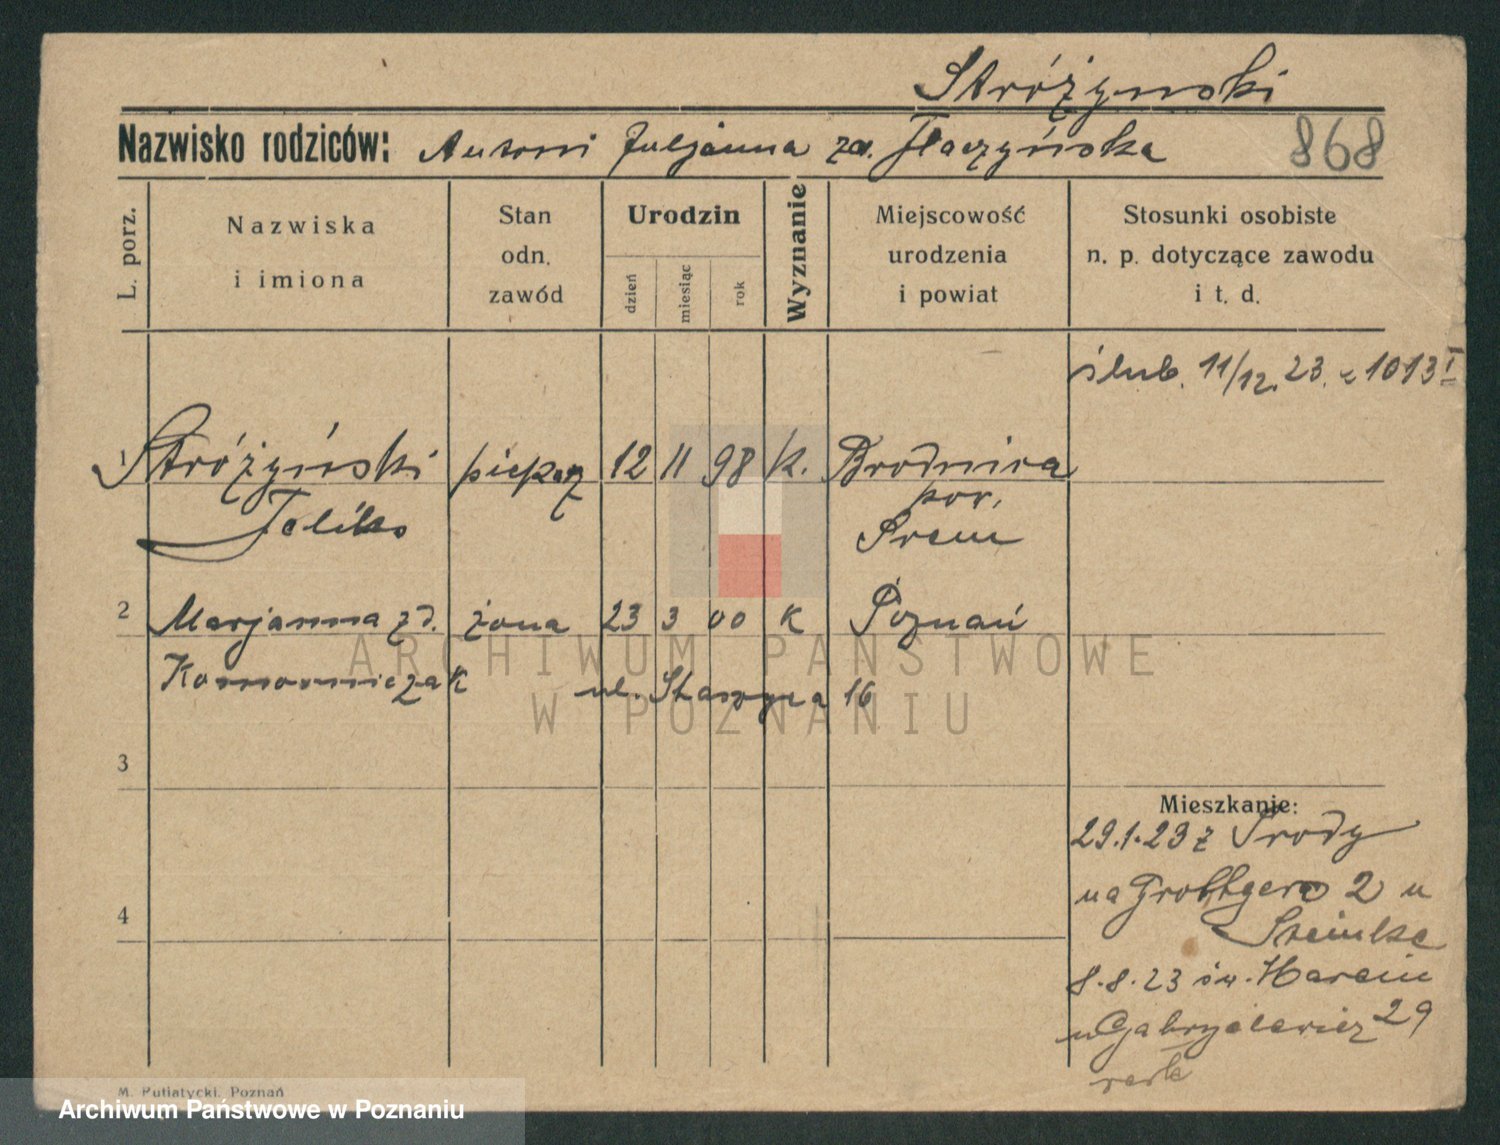 Stróżynski
Nazwisko rodziców: Antoni Juljanna zd. Tłaczyńska 868
L. porz.
Nazwiska i imiona
Stan odn. zawód
Urodzin
dzień
miesiąc
rok
Wyznanie
Miejscowość urodzenia i powiat
Stosunki osobiste n. p. dotyczące zawodu i t. d.
ślub. 11/12. 23. 1013 I
1 Stróżyński piekarz 12 11 98 k. Brodnica
Feliks pow. Śrem
2 Marjanna zd. żona 23 3 00 k Poznań
Kornowniczak ul. Staszyca 16
3
Mieszkanie:
29.1.23 z Środy
na Grottgera 2 u
4
8.8.23 św. Marcin
u Gabryelewicz 29
M. Putiatycki, Poznań
ARCHIWUM PAŃSTWOWE
W POZNANIU
Archiwum Państwowe w Poznaniu